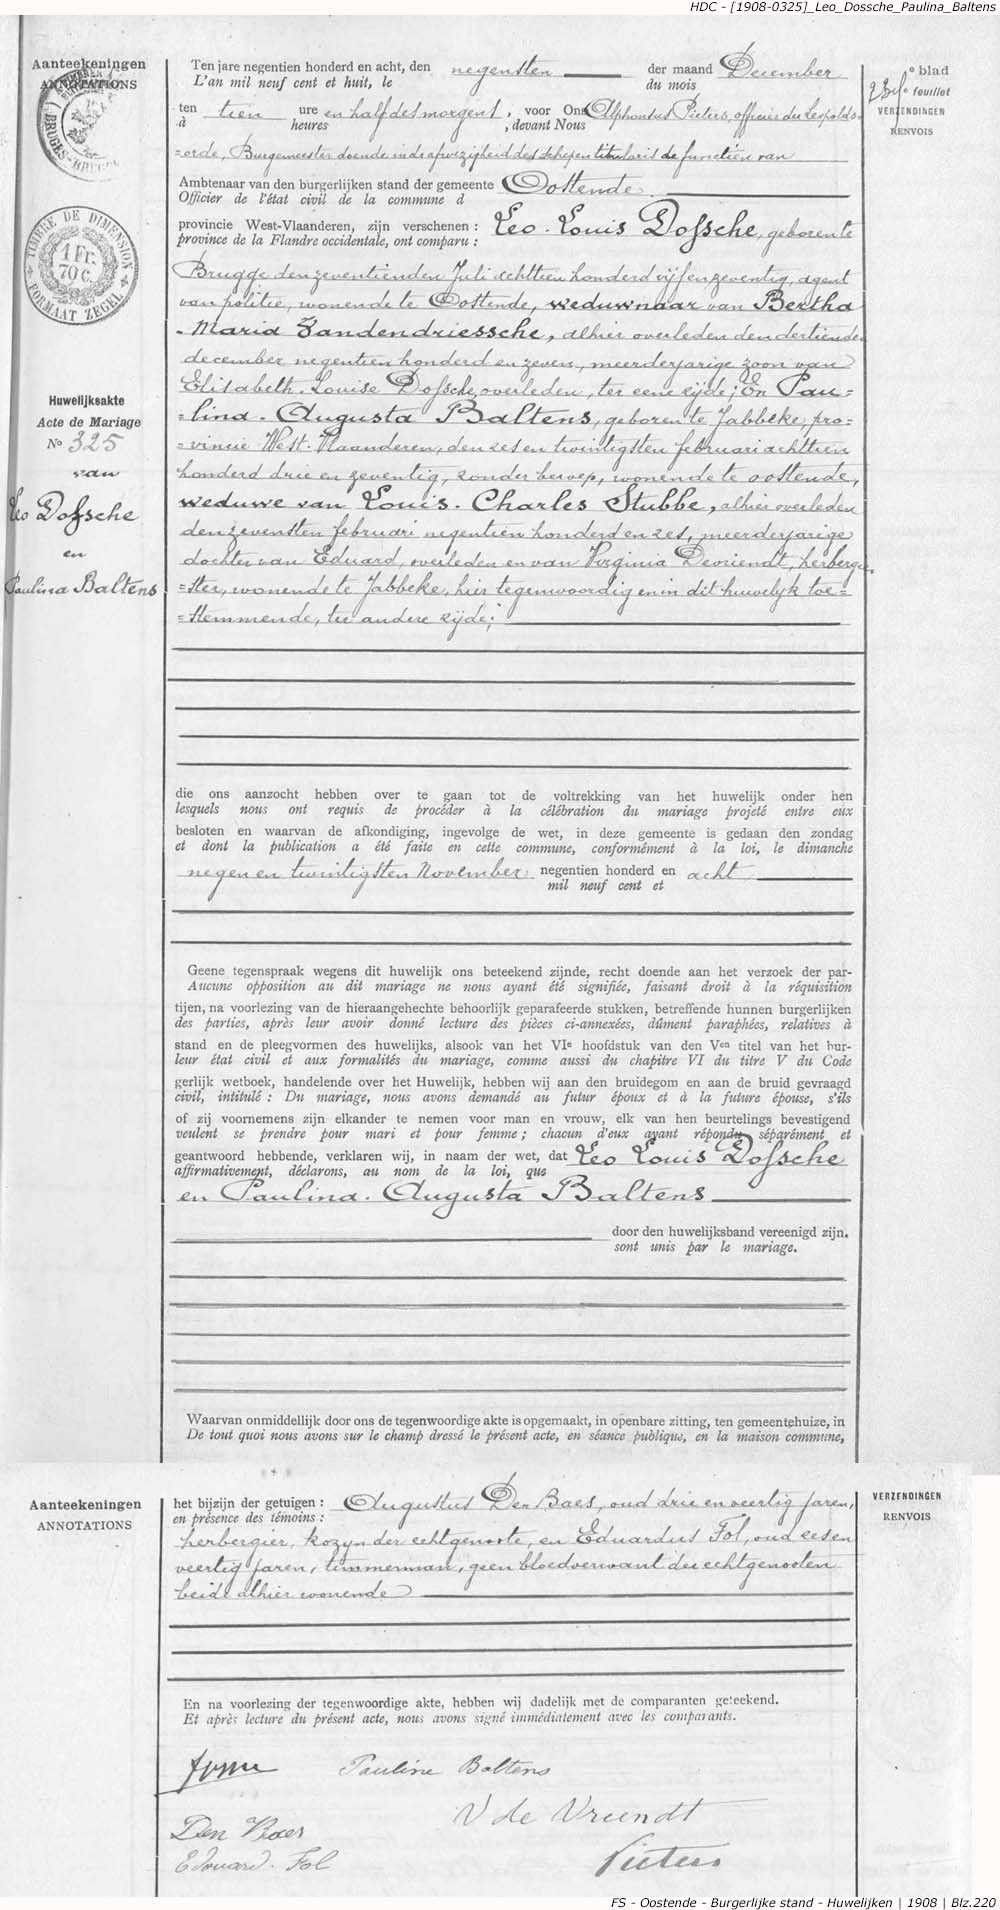 HDC - [1908-0325]_Leo_Dossche_Paulina_Baltens
Aanteekeningen
ANNOTATIONS
BRUGES-BRUGGE
TIMBRE DE DIMENSION
1 Fr.
70 c.
FORMAAT ZEGEL
Huwelijksakte
Acte de Mariage
No 325
van
Leo Dossche
en
Paulina Baltens
Ten jare negentien honderd en acht, den negensten der maand December
L'an mil neuf cent et huit, le du mois
ten tien ure en half des morgens, voor Ons Alphonsus Pieters, officier der Leopolds-
à heures , devant Nous
=orde, Burgemeester doende in de afwezigheid des schepen titularis de functiën van
Ambtenaar van den burgerlijken stand der gemeente Oostende
Officier de l'état civil de la commune d
provincie West-Vlaanderen, zijn verschenen : Leo-Louis Dossche, geboren te
province de la Flandre occidentale, ont comparu :
Brugge den zeventienden Juli achttien honderd vijf en zeventig, agent
van politie, wonende te Oostende, weduwnaar van Bertha
-Maria Vandendriessche, alhier overleden den dertienden
december negentien honderd en zeven, meerderjarige zoon van
Elisabeth-Louise Dossche, overleden, ter eene zijde; En Pau=
=lina-Augusta Baltens, geboren te Jabbeke, pro=
=vincie West-Vlaanderen, den zes en twintigsten februari achttien
honderd drie en zeventig, zonder beroep, wonende te Oostende,
weduwe van Louis-Charles Stubbe, alhier overleden
den zevensten februari negentien honderd en zes, meerderjarige
dochter van Eduard, overleden en van Virginia Devriendt, herbergier=
=ster, wonende te Jabbeke, hier tegenwoordig en in dit huwelijk toe=
=stemmende, ter andere zijde;
die ons aanzocht hebben over te gaan tot de voltrekking van het huwelijk onder hen
lesquels nous ont requis de procéder à la célébration du mariage projeté entre eux
besloten en waarvan de afkondiging, ingevolge de wet, in deze gemeente is gedaan den zondag
et dont la publication a été faite en cette commune, conformément à la loi, le dimanche
negen en twintigsten November negentien honderd en acht
mil neuf cent et
Geene tegenspraak wegens dit huwelijk ons beteekend zijnde, recht doende aan het verzoek der par-
Aucune opposition au dit mariage ne nous ayant été signifiée, faisant droit à la réquisition
tijen, na voorlezing van de hieraangehechte behoorlijk geparafeerde stukken, betreffende hunnen burgerlijken
des parties, après leur avoir donné lecture des pièces ci-annexées, dûment paraphées, relatives à
stand en de pleegvormen des huwelijks, alsook van het VIe hoofdstuk van den Ven titel van het bur-
leur état civil et aux formalités du mariage, comme aussi du chapitre VI du titre V du Code
gerlijk wetboek, handelende over het Huwelijk, hebben wij aan den bruidegom en aan de bruid gevraagd
civil, intitulé : Du mariage, nous avons demandé au futur époux et à la future épouse, s'ils
of zij voornemens zijn elkander te nemen voor man en vrouw, elk van hen beurtelings bevestigend
veulent se prendre pour mari et pour femme ; chacun d'eux ayant répondu séparément et
geantwoord hebbende, verklaren wij, in naam der wet, dat Leo Louis Dossche
affirmativement, déclarons, au nom de la loi, que
en Paulina-Augusta Baltens
door den huwelijksband vereenigd zijn.
sont unis par le mariage.
Waarvan onmiddellijk door ons de tegenwoordige akte is opgemaakt, in openbare zitting, ten gemeentehuize, in
De tout quoi nous avons sur le champ dressé le présent acte, en séance publique, en la maison commune,
e blad
e feuillet
VERZENDINGEN
RENVOIS
Aanteekeningen
ANNOTATIONS
het bijzijn der getuigen : Augustus Den Baes, oud drie en veertig jaren,
en présence des témoins :
herbergier, kozyn der echtgenoote, en Eduardus Fol, oud zes en
veertig jaren, timmerman, geen bloedverwant der echtgenooten
beide alhier wonende
VERZENDINGEN
RENVOIS
En na voorlezing der tegenwoordige akte, hebben wij dadelijk met de comparanten geteekend.
Et après lecture du présent acte, nous avons signé immédiatement avec les comparants.
Pauline Baltens
V de Vriendt
Den Baes
Edouard. Fol
Pieters
FS - Oostende - Burgerlijke stand - Huwelijken | 1908 | Blz.220